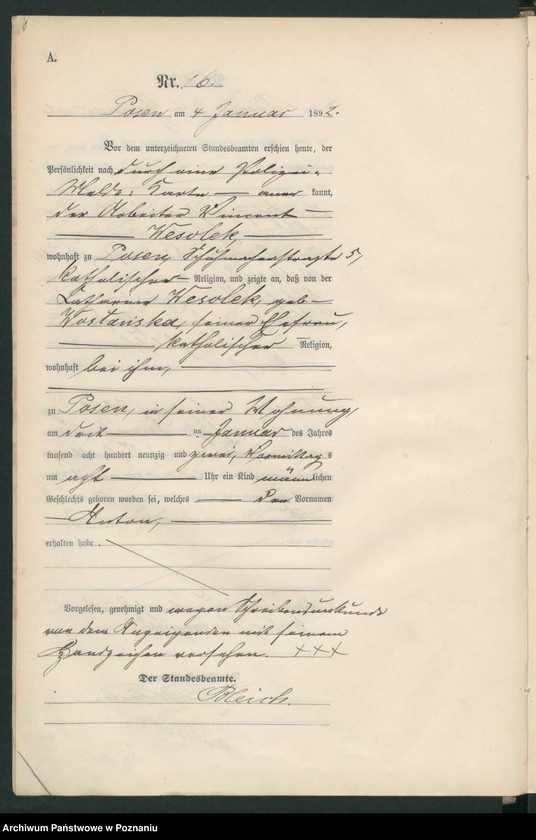 A.
Nr. 16.
Posen am 4 Januar 1892.
Vor dem unterzeichneten Standesbeamten erschien heute, der
Persönlichkeit nach durch eine Polizei-
Melde-Karte aner kannt,
der Arbeiter Vincent
Wesolek,
wohnhaft zu Posen, Schuhmacherstraße 5,
katholischer Religion, und zeigte an, daß von der
Wesolek, geb-
seiner Ehefrau,
katholischer Religion,
wohnhaft bei ihm,
zu Posen, in seiner Wohnung,
am drit ten Januar des Jahres
tausend acht hundert neunzig und zwei, Vormittags
um acht Uhr ein Kind männlichen
Geschlechts geboren worden sei, welches den Vornamen
Anton,
erhalten habe.
Vorgelesen, genehmigt und wegen Schreibensunkunde
von dem Anzeigenden mit seinem
Handzeichen versehen. +++
Der Standesbeamte.
Archiwum Państwowe w Poznaniu